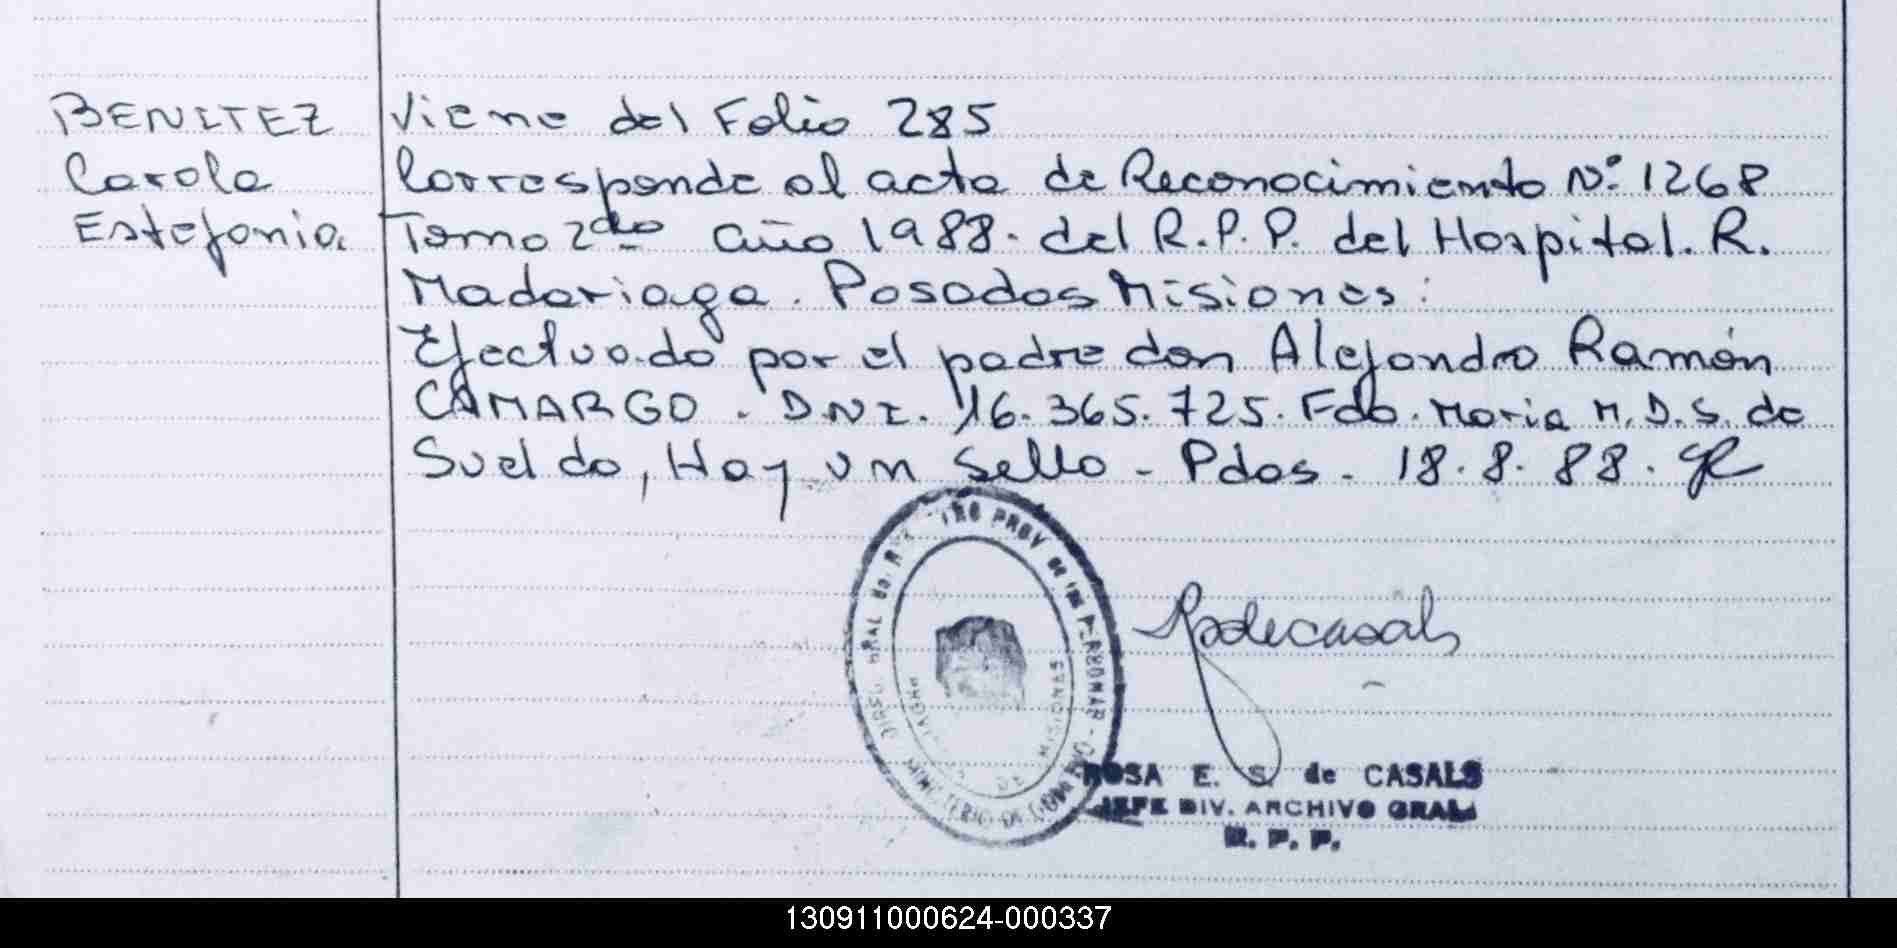 BENITEZ
Carola
Estefania
Viene del Folio 285
Corresponde al acta de Reconocimiento Nº 1268
Tomo 2do año 1988. del R.P.P. del Hospital. R.
Madariaga. Posadas Misiones:
Efectuado por el padre don Alejandro Ramón
CAMARGO. DNI. 16.365.725. Fdo. Maria M.D.S. de
Sueldo, Hay un Sello - Pdas. 18.8.88.
PROV DE LAS PERSONAS
GRAL DEL
MINISTERIO DE GOBIERNO
DE MISIONES
ROSA E. S. de CASALS
JEFE DIV. ARCHIVO GRAL
R. P. P.
130911000624-000337